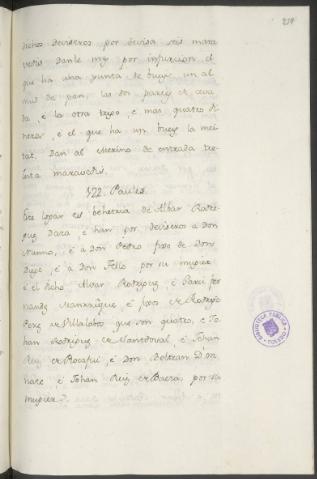 217
dichos deviseros por devisa seis mara
vedis. Danle mas por infurcion el
que ha una yunta de buey un al
mud de pan, las dos partes de ceva
da, é la otra trigo, é mas quatro di
neros, é el que ha un buey la mei
tat. Dan al Merino de entrada tre
inta maravedis.
122. Paules.
Este logar es behetria de Alvar Rodri
guez Daza, é han por deviseros a Don
Nunno, é a Don Pedro fijos de Don
Diego, é a Don Tello por su muger
é el dicho Alvar Rodriguez, é Garci Fer
nandez Manrrique, é fijos de Rodrigo
Perez de Villalobos que son quatro, é Jo
han Rodriguez de Sandoval é Johan
Ruiz de Rocafui, é Don Beltran D.
nate, é Johan Ruiz de Baeza, por su
muger.
BIBLIOTECA PUBLICA
TOLEDO